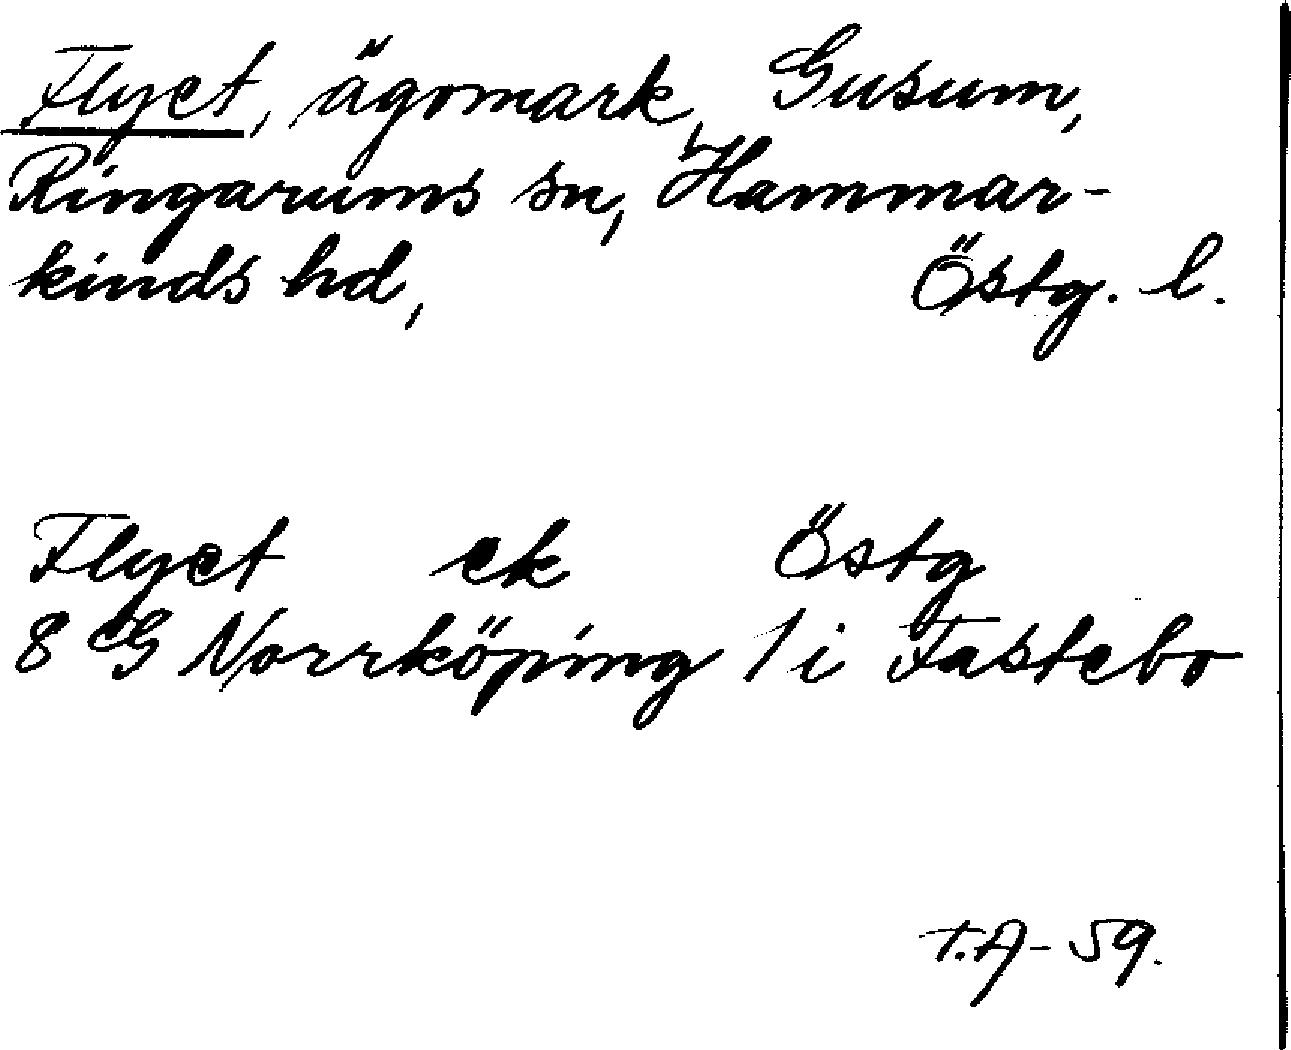 Flyet, ägomark, Gusum,
Ringarums sn, Hammar-
kinds hd, Östg. l.
Flyet ek Östg
8 G Norrköping 1 i Fastebo
T.A-59.